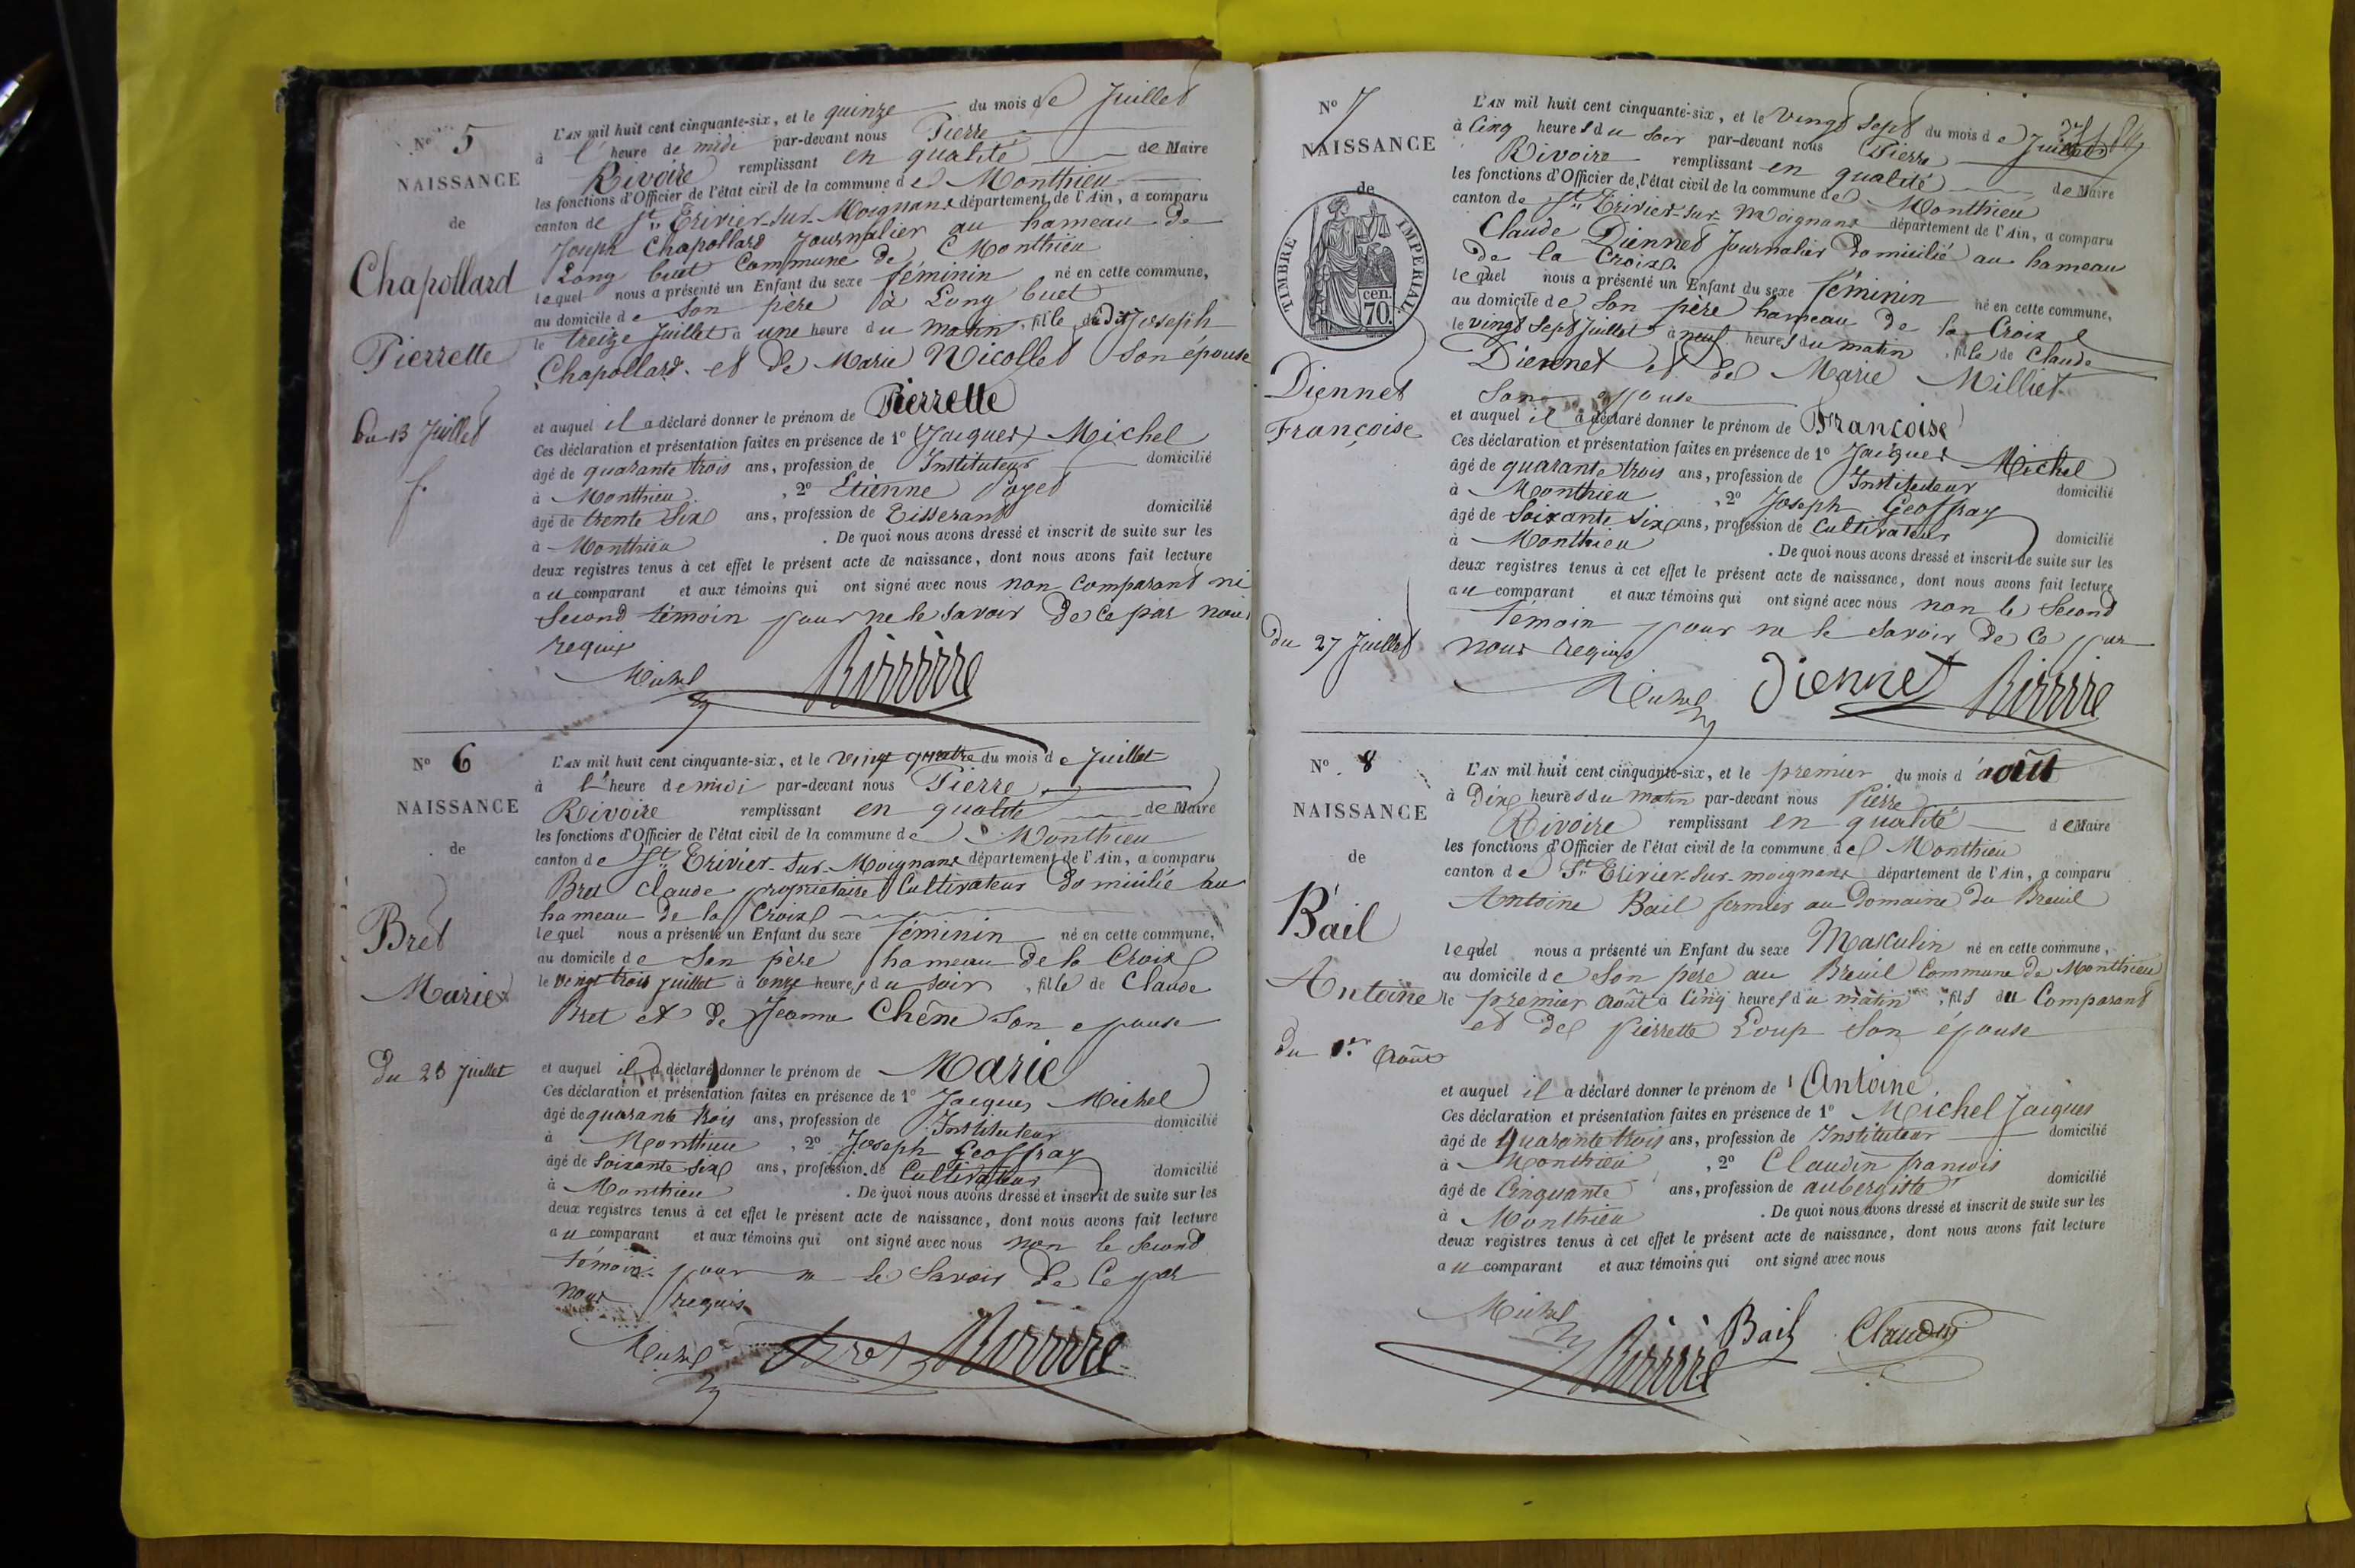 N° 5
NAISSANCE
de
Chapollard
Pierrette
Du 13 Juillet
L'AN mil huit cent cinquante-six, et le quinze du mois de Juillet
à l'heure de midi par-devant nous Pierre
Rivoire remplissant en qualité de Maire
les fonctions d'Officier de l'état civil de la commune de Monthieu
canton de St Trivier-sur-Moignans département de l'Ain, a comparu
Joseph Chapollard Journalier au hameau de
Long buet Commune de Monthieu
lequel nous a présenté un Enfant du sexe féminin né en cette commune,
au domicile de son père à Long buet
le treize Juillet à une heure du matin, fille du dit Joseph
Chapollard et de Marie Nicollet son épouse
et auquel il a déclaré donner le prénom de Pierrette
Ces déclaration et présentation faites en présence de 1° Jacques Michel
âgé de quarante trois ans, profession de Instituteur domicilié
à Monthieu, 2° Etienne Poyet
âgé de trente six ans, profession de Tisserand domicilié
à Monthieu. De quoi nous avons dressé et inscrit de suite sur les
deux registres tenus à cet effet le présent acte de naissance, dont nous avons fait lecture
au comparant et aux témoins qui ont signé avec nous non Comparant ni
Second témoin pour ne le savoir de ce par nous
requis
Michel Rivoire
N° 6
NAISSANCE
de
Bret
Marie
Du 23 Juillet
L'AN mil huit cent cinquante-six, et le vingt quatre du mois de Juillet
à l'heure de midi par-devant nous Pierre
Rivoire remplissant en qualité de Maire
les fonctions d'Officier de l'état civil de la commune de Monthieu
canton de St Trivier-sur-Moignans département de l'Ain, a comparu
Bret Claude propriétaire Cultivateur domicilié au
hameau de la Croix
lequel nous a présenté un Enfant du sexe féminin né en cette commune,
au domicile de Son père hameau de la Croix
le vingt trois juillet à onze heures du soir, fille de Claude
Bret et de Jeanne Chêne son epouse
et auquel il a déclaré donner le prénom de Marie
Ces déclaration et présentation faites en présence de 1° Jacques Michel
âgé de quarante trois ans, profession de Instituteur domicilié
à Monthieu, 2° Joseph Geoffray
âgé de Soixante six ans, profession de Cultivateur domicilié
à Monthieu. De quoi nous avons dressé et inscrit de suite sur les
deux registres tenus à cet effet le présent acte de naissance, dont nous avons fait lecture
au comparant et aux témoins qui ont signé avec nous non le second
témoin pour ne le Savoir de Ce par
nous requis
Michel Bret Rivoire
N° 7
NAISSANCE
de
TIMBRE IMPERIAL
70 cen.
Diennet
Françoise
Du 27 Juillet
L'AN mil huit cent cinquante-six, et le vingt sept du mois de Juillet
à Cinq heures du soir par-devant nous Pierre
Rivoire remplissant en qualité de Maire
les fonctions d'Officier de l'état civil de la commune de Monthieu
canton de St Trivier-sur-Moignans département de l'Ain, a comparu
Claude Diennet Journalier Domicilié au hameau
de la Croix
lequel nous a présenté un Enfant du sexe féminin né en cette commune,
au domicile de Son père hameau de la Croix
le vingt sept Juillet à neuf heures du matin, fille de Claude
Diennet et de Marie Milliet
Son epouse
et auquel il a déclaré donner le prénom de Françoise
Ces déclaration et présentation faites en présence de 1° Jacques Michel
âgé de quarante trois ans, profession de Instituteur domicilié
à Monthieu, 2° Joseph Geoffray
âgé de Soixante Six ans, profession de Cultivateur domicilié
à Monthieu. De quoi nous avons dressé et inscrit de suite sur les
deux registres tenus à cet effet le présent acte de naissance, dont nous avons fait lecture
au comparant et aux témoins qui ont signé avec nous non le Second
témoin pour ne le savoir de Ce par
nous requis
Michel Diennet Rivoire
N° 8
NAISSANCE
de
Bail
Antoine
Du 1er Août
L'AN mil huit cent cinquante-six, et le premier du mois d'août
à Dix heures du matin par-devant nous Pierre
Rivoire remplissant en qualité de Maire
les fonctions d'Officier de l'état civil de la commune de Monthieu
canton de St Trivier-sur-moignans département de l'Ain, a comparu
Antoine Bail fermier au Domaine du Breuil
lequel nous a présenté un Enfant du sexe Masculin né en cette commune,
au domicile de Son père au Breuil Commune de Monthieu
le premier Août à Cinq heures du matin, fils du Comparant
et de Pierrette Loup Son épouse
et auquel il a déclaré donner le prénom de Antoine
Ces déclaration et présentation faites en présence de 1° Michel Jacques
âgé de Quarante trois ans, profession de Instituteur domicilié
à Monthieu, 2° Claudin françois
âgé de Cinquante ans, profession de aubergiste domicilié
à Monthieu. De quoi nous avons dressé et inscrit de suite sur les
deux registres tenus à cet effet le présent acte de naissance, dont nous avons fait lecture
au comparant et aux témoins qui ont signé avec nous
Michel Rivoire Bail Claudin